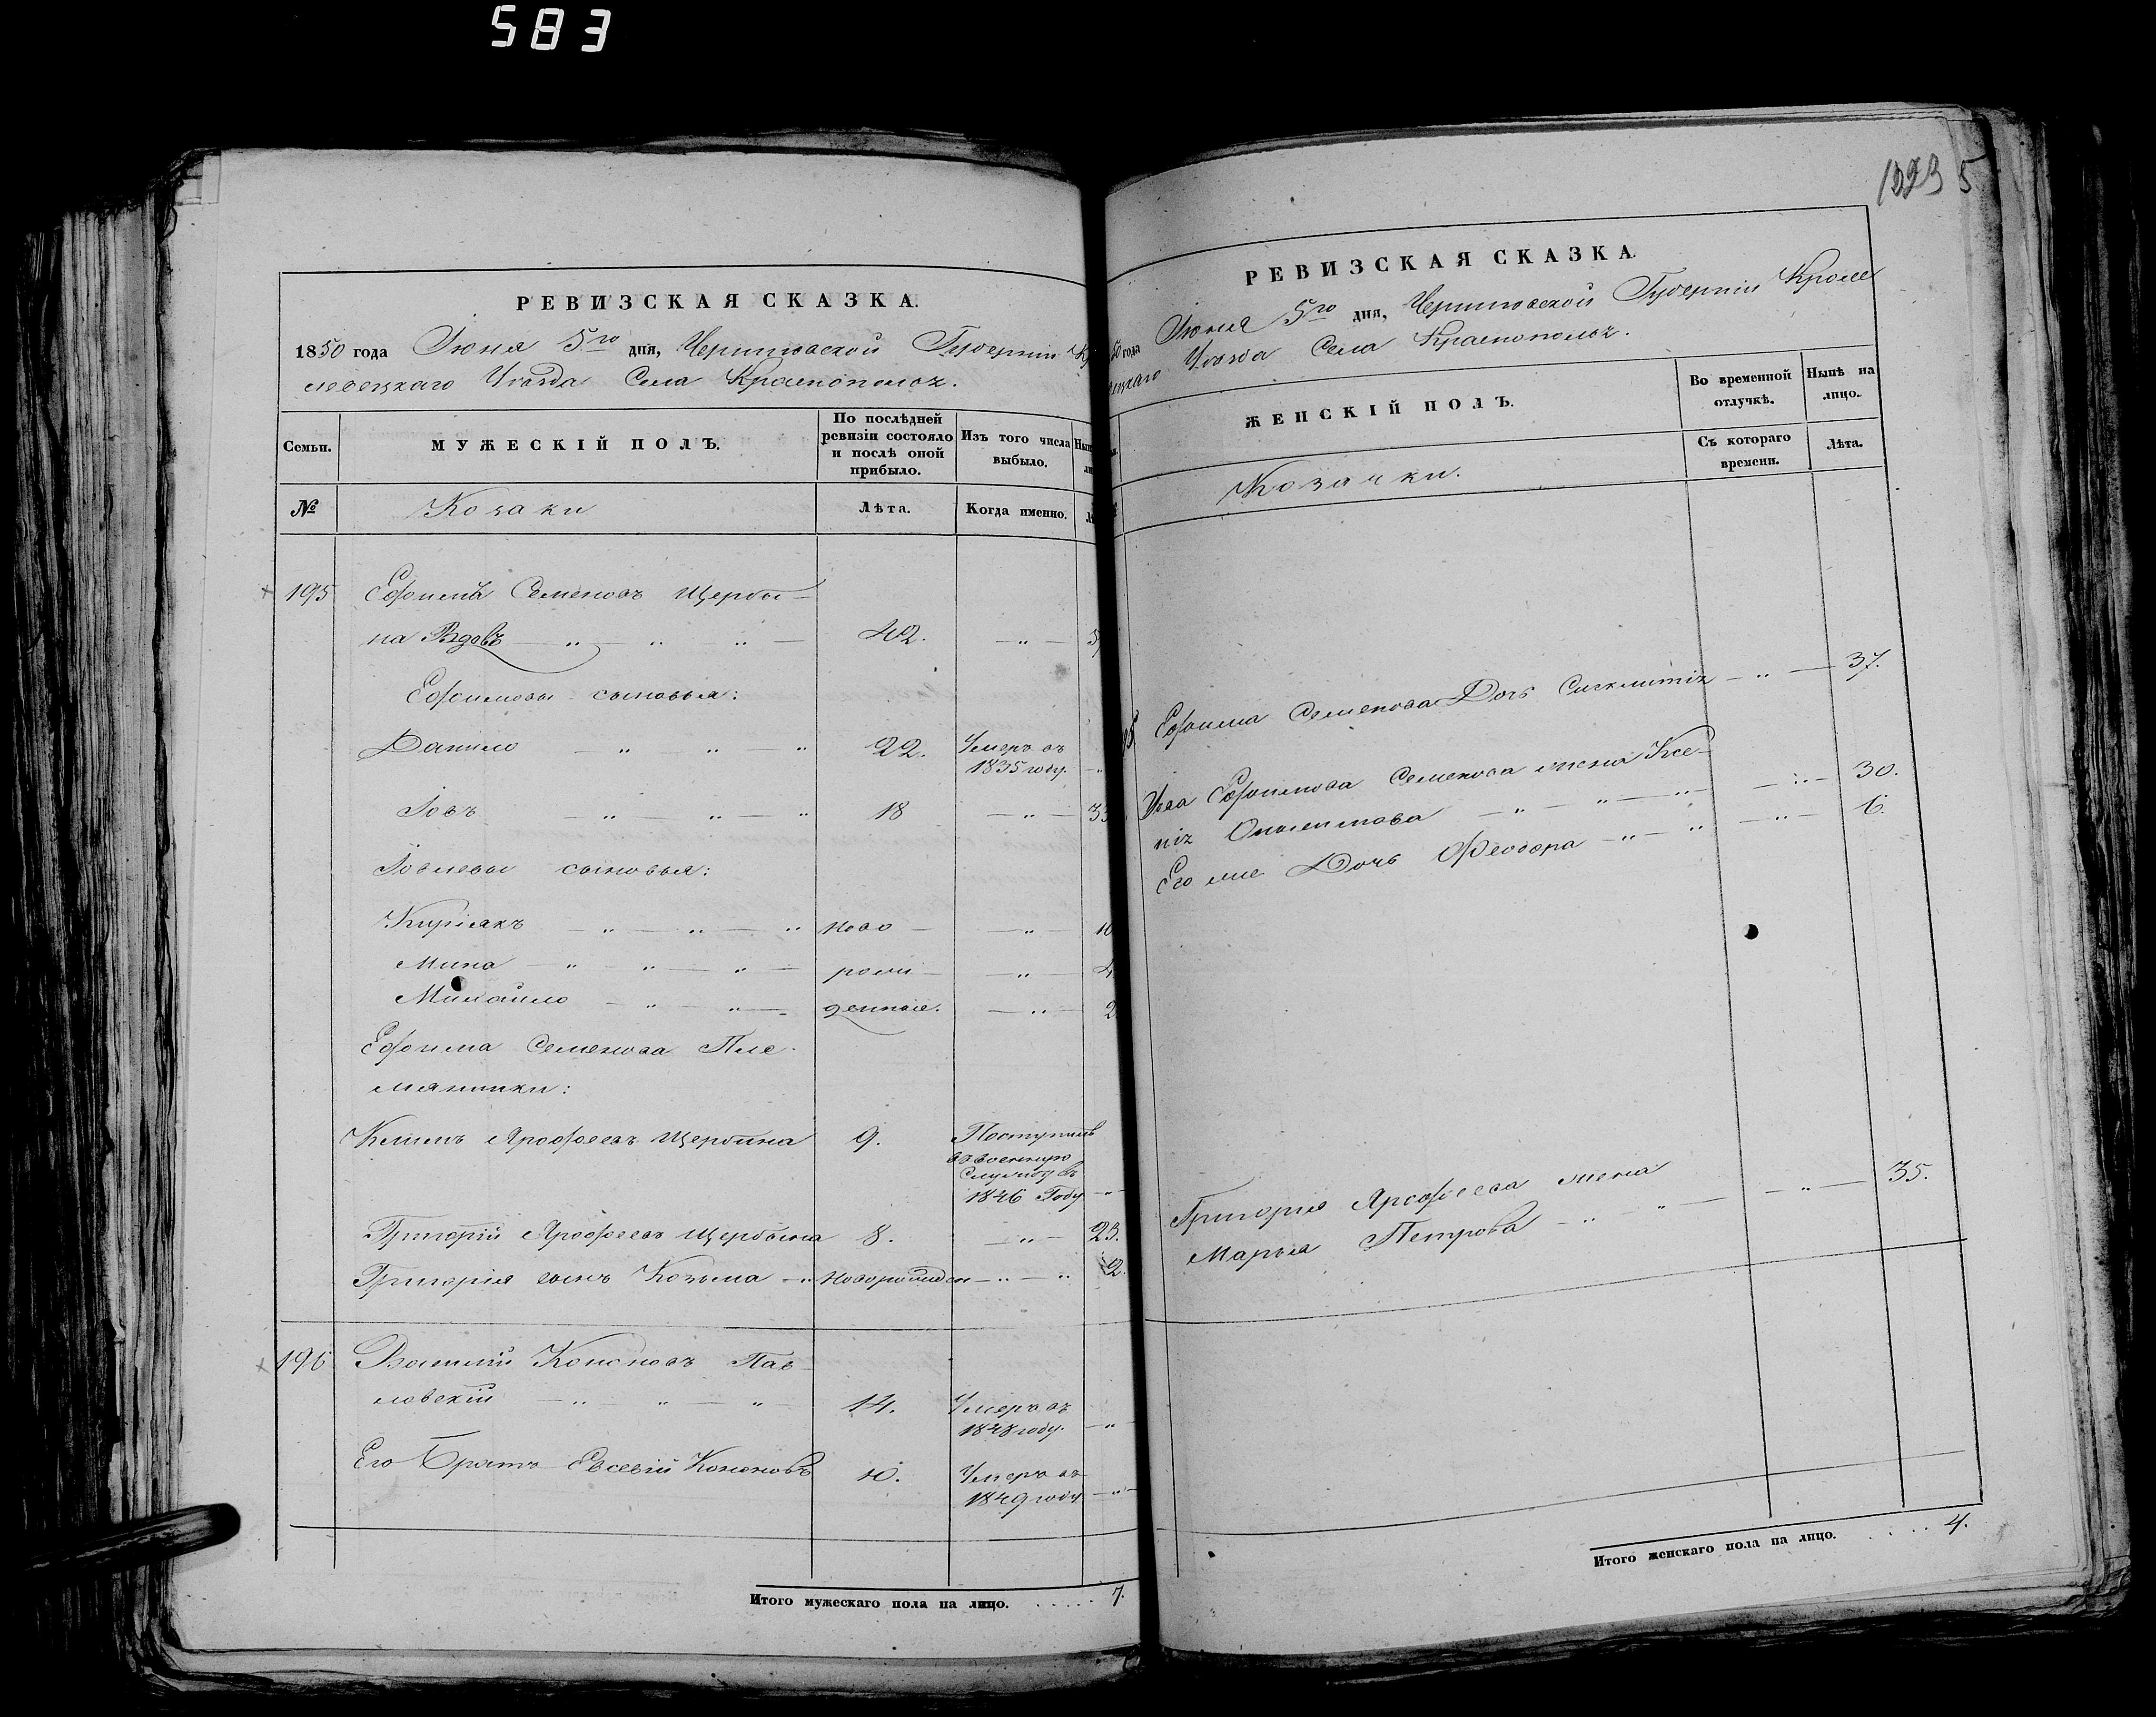 583
РЕВИЗСКАЯ СКАЗКА.
1850 года Июня 5го дня, Черниговской Губерніи Кр
левецкаго Уезда Села Краснополья.
Семьи.
МУЖЕСКІЙ ПОЛЪ.
По послѣдней ревизіи состояло и послѣ оной прибыло.
Изъ того числа выбыло.
№
Козаки
Лѣта.
Когда именно.
195 Ефимъ Семеновъ Щерби-
на Вдовъ 42.
Ефимовы сыновья:
Данило 22. Умеръ въ
1835 году.
Іовъ 18 33
Іовлевы сыновья:
Киріякъ ново 10
Мина рож 4
Михайло денные. 2
Ефима Семенова Пле-
мянники:
Климъ Ярофеевъ Щербина 9. Поступилъ
въ военную
Службу въ
1846 Году
Григорій Ярофеевъ Щербина 8. 23.
Григорія сынъ Козьма Новорожден 2.
196 Василій Кононовъ Пав-
ловскій 14. Умеръ въ
1848 году.
Его Братъ Евсевій Кононовъ 10. Умеръ въ
1849 году
Итого мужескаго пола на лицо. . . . . . 7.
5
РЕВИЗСКАЯ СКАЗКА.
50 года Июня 5го дня, Черниговской Губерніи Кроле
ецкаго Уезда Села Краснополья.
ЖЕНСКІЙ ПОЛЪ.
Во временной отлучкѣ.
Нынѣ на лицо.
Козачки.
Съ котораго времени.
Лѣта.
Ефима Семенова Дочь 37.
Іова Ефимова Семенова жена Ксе-
нія 30.
Его же Дочь Феодора 6.
Григорія Ярофеева жена
Марья Петрова 35.
Итого женскаго пола на лицо. . . . . 4.